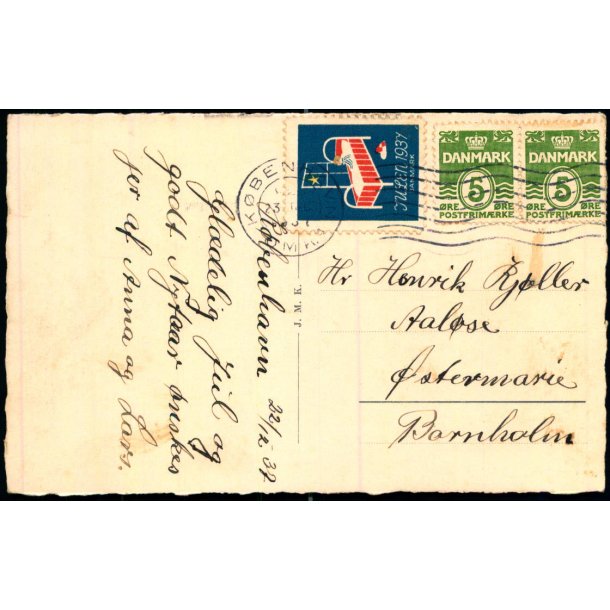 København 22/12-37
Glædelig Jul og
godt Nytaar ønskes
jer af Anna og Lars.
J. M. K.
Julen 1937
DANMARK
DANMARK
5
ØRE ØRE
POSTFRIMÆRKE
DANMARK
5
ØRE ØRE
POSTFRIMÆRKE
Hr Henrik Kjøller
Aaløse
Østermarie
Bornholm